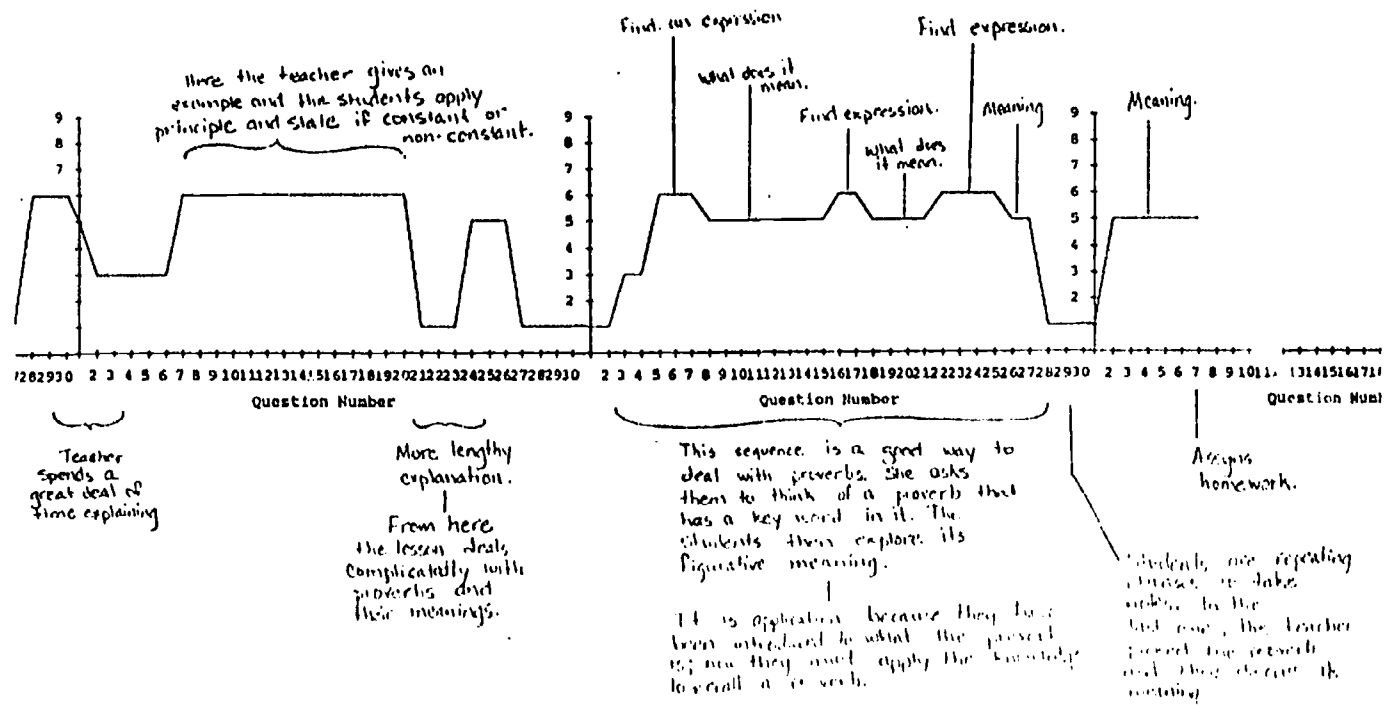 Find. an expression
Find expression.
What does it
mean.
Here the teacher gives an
example and the students apply
principle and state if constant or
non-constant.
Find expression.
Meaning
Meaning.
What does
it mean.
9
8
7
9
8
7
6
5
4
3
2
9
8
7
6
5
4
3
2
282930 2 3 4 5 6 7 8 9 101112131415161718192021222324252627282930 2 3 4 5 6 7 8 9 101112131415161718192021222324252627282930 2 3 4 5 6 7 8 9 1011 1314151617
Question Number
Question Number
Question Num
Teacher
spends a
great deal of
time explaining
More lengthy
explanation.
From here
the lesson deals
with
proverbs and
their meanings.
This sequence is a good way to
deal with proverbs. She asks
them to think of a proverb that
has a key word in it. The
students then explore its
figurative meaning.
It is application because they
been introduced to what the
is; now they must apply the knowledge
to recall a
Assigns
homework.
Students are repeating
phrases
the
last one, the teacher
picked the proverb
and they discuss its
meaning